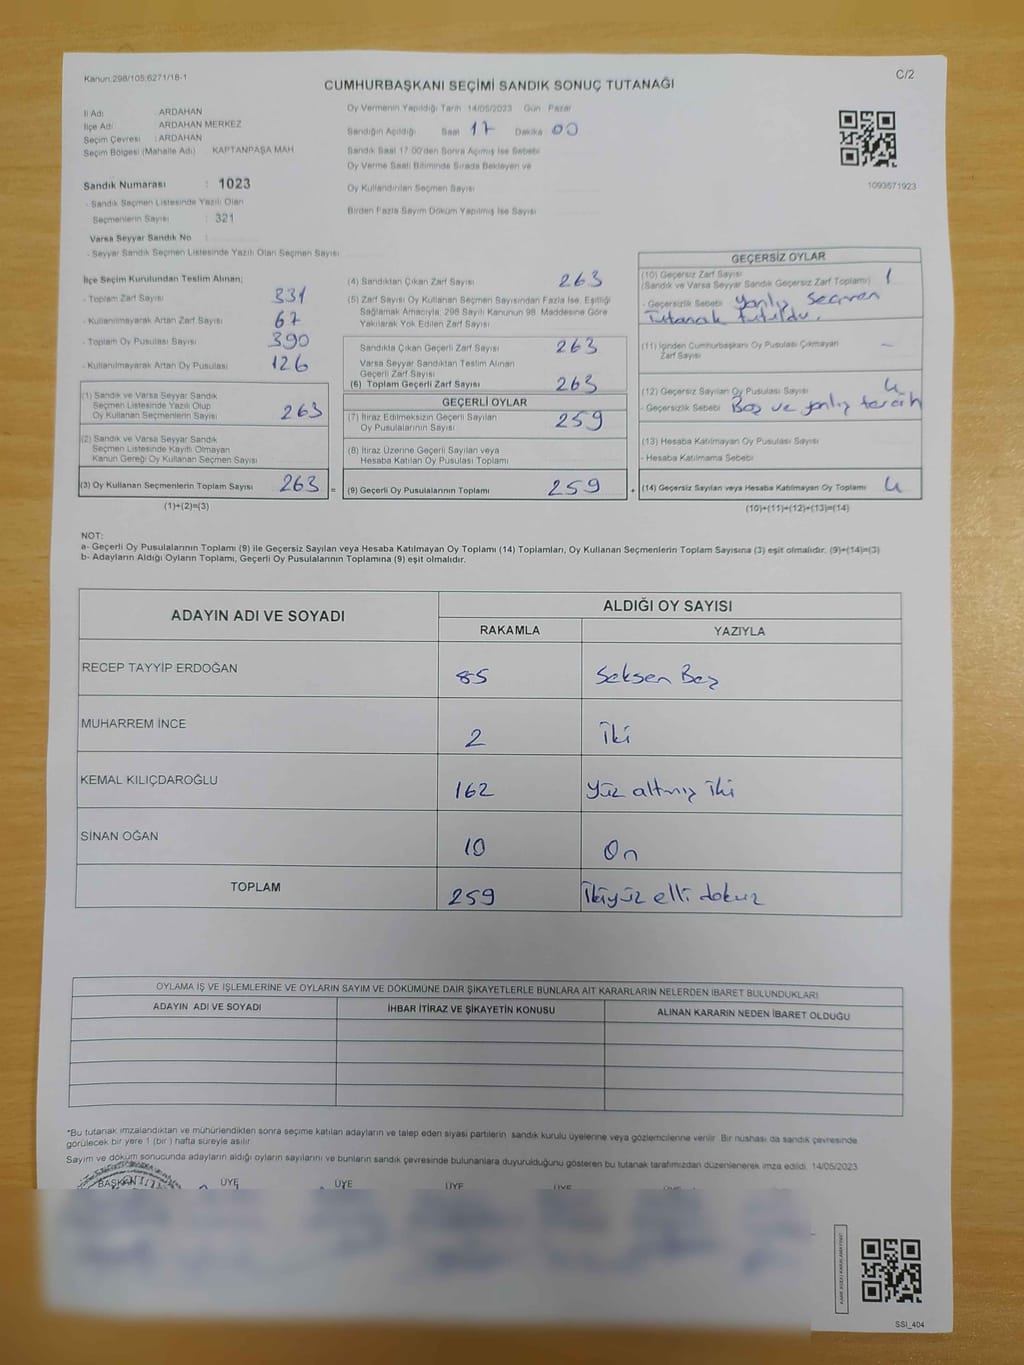 Kanun:298/105:6271/18-1
C/2
CUMHURBAŞKANI SEÇİMİ SANDIK SONUÇ TUTANAĞI
İl Adı : ARDAHAN
İlçe Adı : ARDAHAN MERKEZ
Seçim Çevresi : ARDAHAN
Seçim Bölgesi (Mahalle Adı) KAPTANPAŞA MAH
Sandık Numarası : 1023
- Sandık Seçmen Listesinde Yazılı Olan
Seçmenlerin Sayısı : 321
Varsa Seyyar Sandık No :
- Seyyar Sandık Seçmen Listesinde Yazılı Olan Seçmen Sayısı
Oy Vermenin Yapıldığı Tarih 14/05/2023 Gün Pazar
Sandığın Açıldığı Saat 17 Dakika 00
Sandık Saat 17:00'den Sonra Açılmış İse Sebebi
Oy Verme Saati Bitiminde Sırada Bekleyen ve
Oy Kullandırılan Seçmen Sayısı
Birden Fazla Sayım Döküm Yapılmış İse Sayısı
1093671923
İlçe Seçim Kurulundan Teslim Alınan;
- Toplam Zarf Sayısı 331
- Kullanılmayarak Artan Zarf Sayısı 67
- Toplam Oy Pusulası Sayısı 390
- Kullanılmayarak Artan Oy Pusulası 126
(1) Sandık ve Varsa Seyyar Sandık
Seçmen Listesinde Yazılı Olup
Oy Kullanan Seçmenlerin Sayısı 263
(2) Sandık ve Varsa Seyyar Sandık
Seçmen Listesinde Kayıtlı Olmayan
Kanun Gereği Oy Kullanan Seçmen Sayısı
(3) Oy Kullanan Seçmenlerin Toplam Sayısı 263 =
(1)+(2)=(3)
(4) Sandıktan Çıkan Zarf Sayısı 263
(5) Zarf Sayısı Oy Kullanan Seçmen Sayısından Fazla İse, Eşitliği
Sağlamak Amacıyla, 298 Sayılı Kanunun 98. Maddesine Göre
Yakılarak Yok Edilen Zarf Sayısı
Sandıkta Çıkan Geçerli Zarf Sayısı 263
Varsa Seyyar Sandıktan Teslim Alınan
Geçerli Zarf Sayısı
(6) Toplam Geçerli Zarf Sayısı 263
GEÇERLİ OYLAR
(7) İtiraz Edilmeksizin Geçerli Sayılan
Oy Pusulalarının Sayısı 259
(8) İtiraz Üzerine Geçerli Sayılan veya
Hesaba Katılan Oy Pusulası Toplamı
(9) Geçerli Oy Pusulalarının Toplamı 259 +
GEÇERSİZ OYLAR
(10) Geçersiz Zarf Sayısı 1
(Sandık ve Varsa Seyyar Sandık Geçersiz Zarf Toplamı)
- Geçersizlik Sebebi yanlış Seçmen
Tutanak tutuldu.
(11) İçinden Cumhurbaşkanı Oy Pusulası Çıkmayan -
Zarf Sayısı
(12) Geçersiz Sayılan Oy Pusulası Sayısı 4
- Geçersizlik Sebebi Boş ve yanlış tercih
(13) Hesaba Katılmayan Oy Pusulası Sayısı
- Hesaba Katılmama Sebebi
(14) Geçersiz Sayılan veya Hesaba Katılmayan Oy Toplamı 4
(10)+(11)+(12)+(13)=(14)
NOT:
a- Geçerli Oy Pusulalarının Toplamı (9) ile Geçersiz Sayılan veya Hesaba Katılmayan Oy Toplamı (14) Toplamları, Oy Kullanan Seçmenlerin Toplam Sayısına (3) eşit olmalıdır. (9)+(14)=(3)
b- Adayların Aldığı Oyların Toplamı, Geçerli Oy Pusulalarının Toplamına (9) eşit olmalıdır.
ADAYIN ADI VE SOYADI ALDIĞI OY SAYISI
RAKAMLA YAZIYLA
RECEP TAYYİP ERDOĞAN 85 Seksen Beş
MUHARREM İNCE 2 İki
KEMAL KILIÇDAROĞLU 162 Yüz altmış iki
SİNAN OĞAN 10 On
TOPLAM 259 İkiyüz elli dokuz
OYLAMA İŞ VE İŞLEMLERİNE VE OYLARIN SAYIM VE DÖKÜMÜNE DAİR ŞİKAYETLERLE BUNLARA AİT KARARLARIN NELERDEN İBARET BULUNDUKLARI
ADAYIN ADI VE SOYADI İHBAR İTİRAZ VE ŞİKAYETİN KONUSU ALINAN KARARIN NEDEN İBARET OLDUĞU
*Bu tutanak imzalandıktan ve mühürlendikten sonra seçime katılan adayların ve talep eden siyasi partilerin sandık kurulu üyelerine veya gözlemcilerine verilir. Bir nüshası da sandık çevresinde
görülecek bir yere 1 (bir) hafta süreyle asılır.
Sayım ve döküm sonucunda adayların aldığı oyların sayılarını ve bunların sandık çevresinde bulunanlara duyurulduğunu gösteren bu tutanak tarafımızdan düzenlenerek imza edildi. 14/05/2023
BAŞKAN ÜYE ÜYE ÜYE ÜYE
SSİ_404